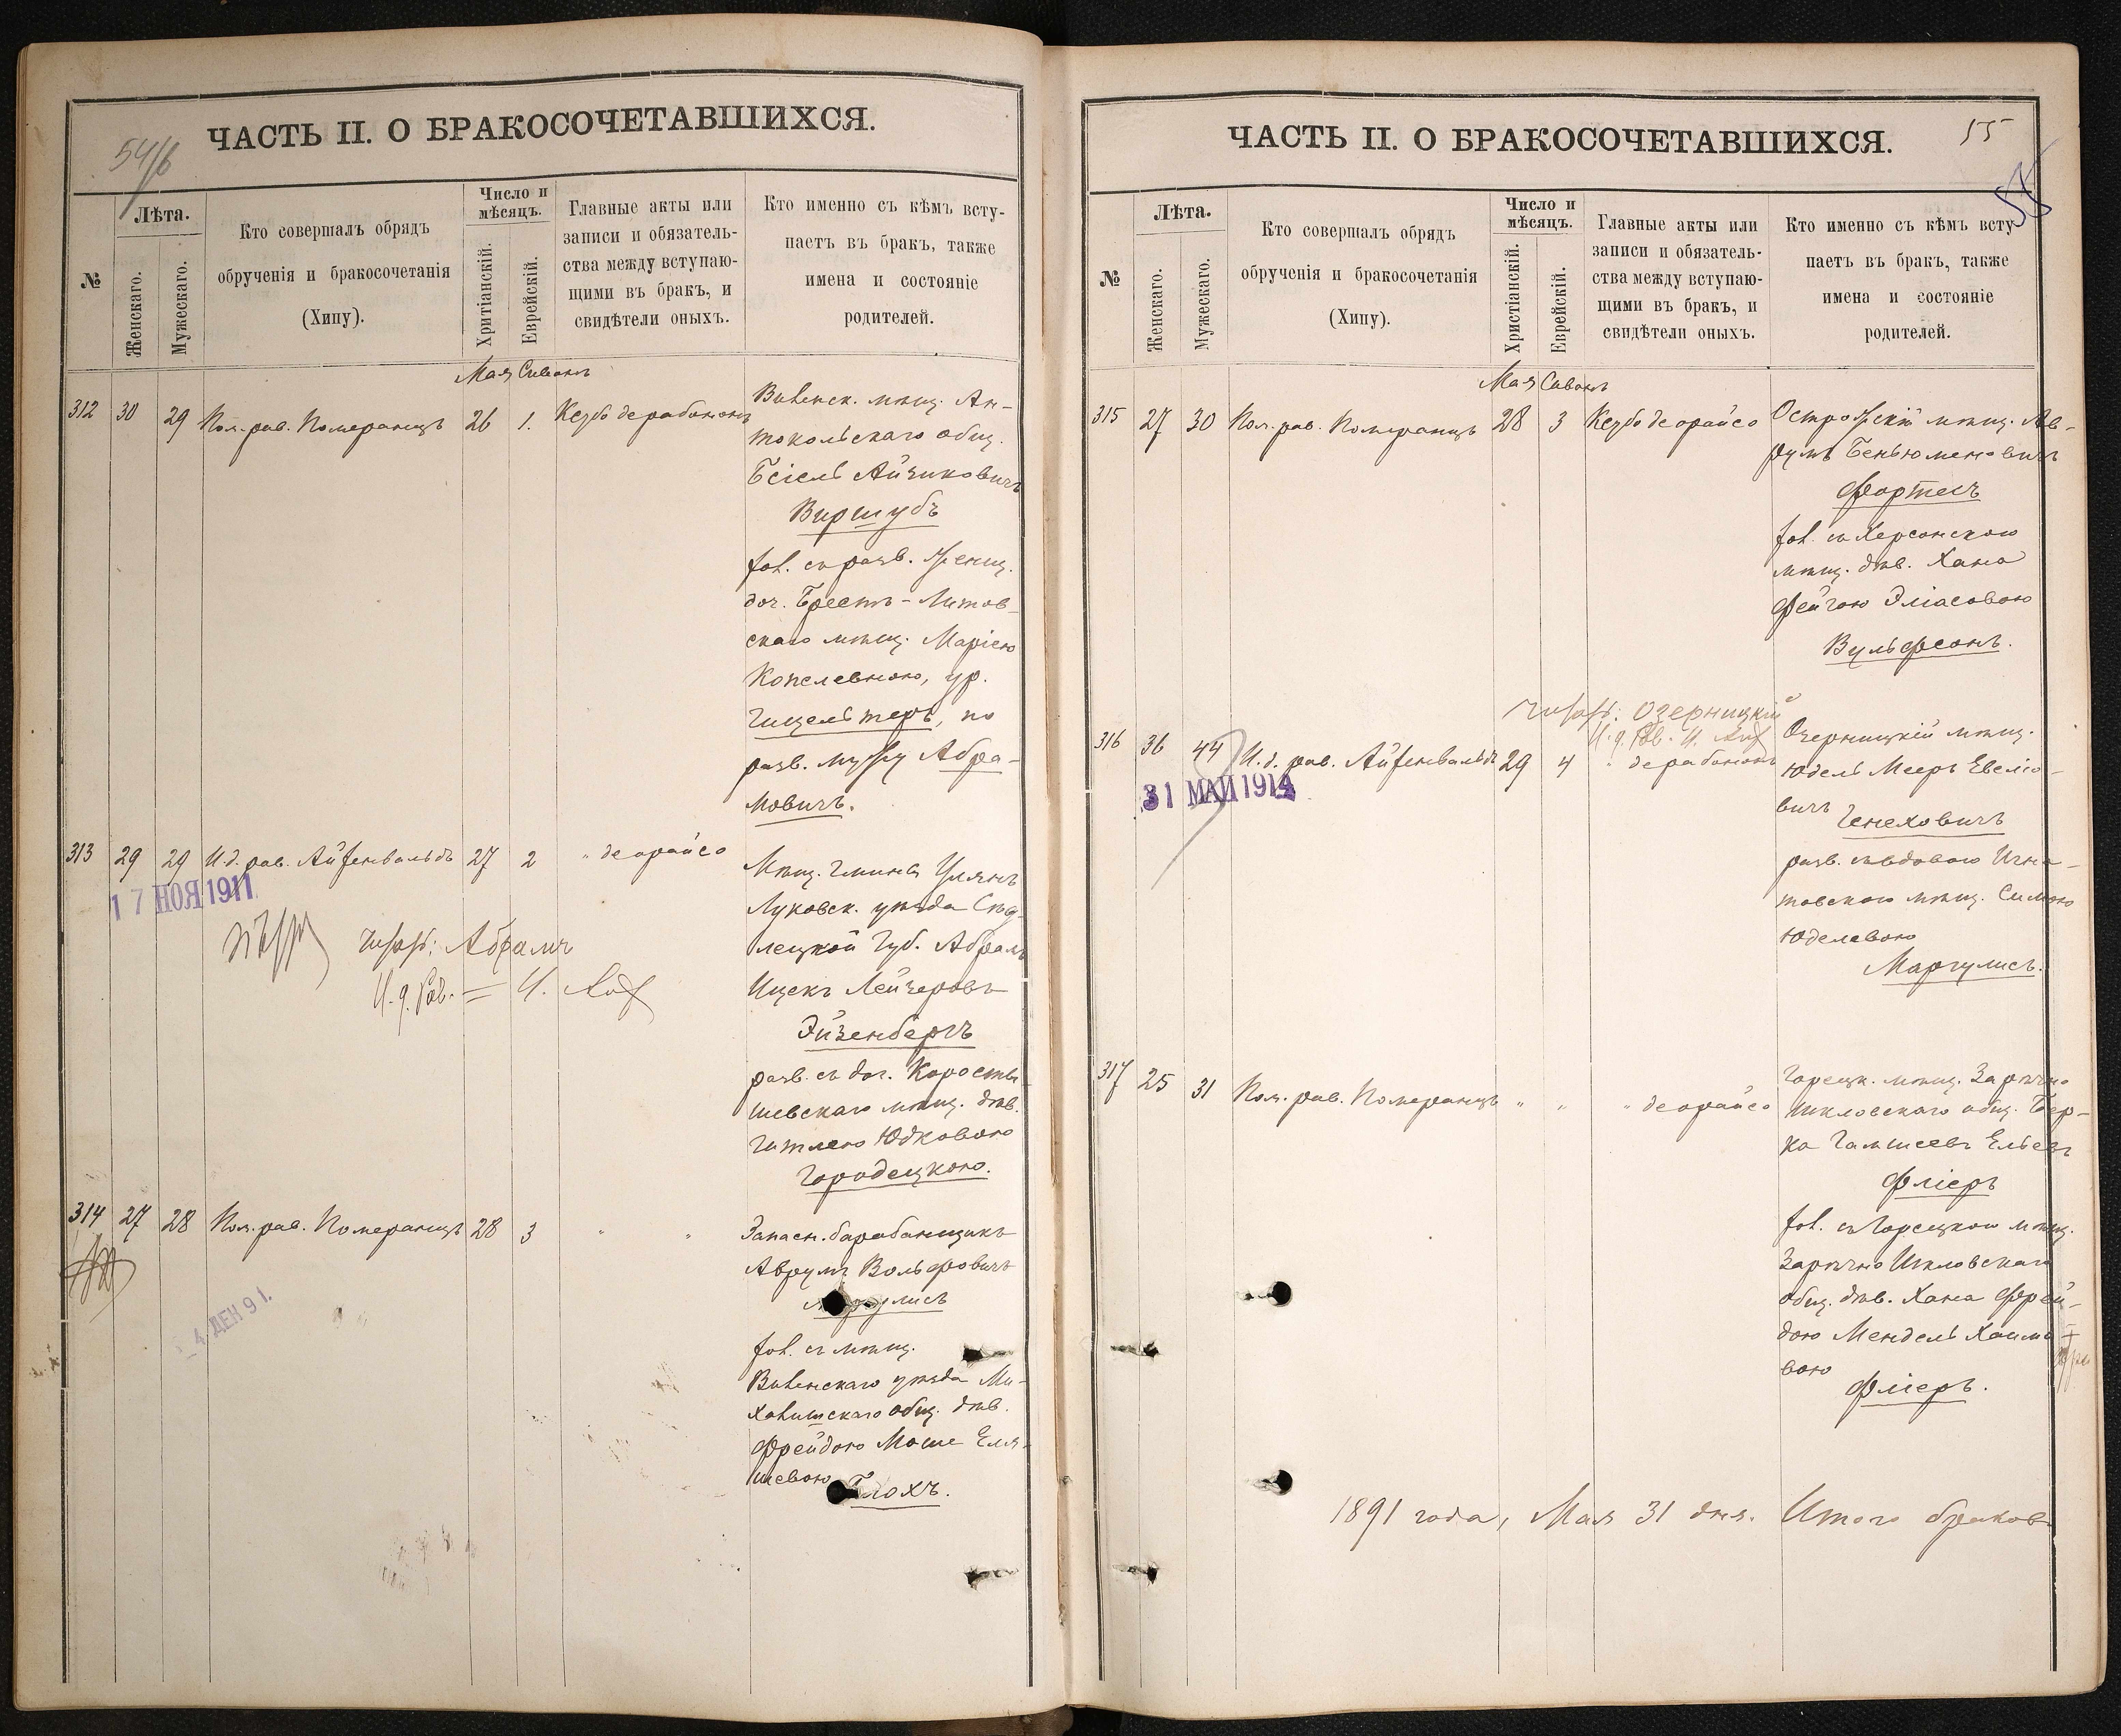 54/б
ЧАСТЬ II. О БРАКОСОЧЕТАВШИХСЯ.
№
Лѣта.
Женскаго.
Мужескаго.
Кто совершалъ обрядъ
обрученія и бракосочетанія
(Хипу).
Число и
мѣсяцъ.
Хритіанскій.
Еврейскій.
Главные акты или
записи и обязатель-
ства между вступаю-
щими въ бракъ, и
свидѣтели оныхъ.
Кто именно съ кѣмъ всту-
паетъ въ бракъ, также
имена и состояніе
родителей.
Мая Сивонъ
312 30 29 Пом. рав. Померанцъ 26 1. Кезубо дерабононъ
Виленск. мѣщ. Ан-
токольскаго общ.
Бсіель Айзиковичъ
Виршубъ
хол. съ разв. женщ.
доч. Брестъ-Литов-
скаго мѣщ. Маріею
Копелевною, ур.
Гицельтеръ, по
разв. мужу Абра-
мовичъ.
313 29 29 И.д. рав. Айзенвальдъ 27 2 " деорайсо
17 НОЯ 1911
Абрамъ
И.д. Рав.
Мѣщ. Гмины Улянъ
Луковск. уѣзда Сѣд-
лецкой Губ. Абрамъ
Ицекъ Лейзеровъ
Эйзенбергъ
разв. съ доч. Коросты-
шевскаго мѣщ. дѣв.
Гитлею Юдковою
Городецкою.
314 27 28 Пом. рав. Померанцъ 28 3 " "
Запасн. барабанщикъ
Аврумъ Вольфовичъ
хол. съ мѣщ.
Виленскаго уѣзда Ми-
халишскаго общ. дѣв.
Фрейдою Моше Еля-
шевою Блохъ.
ЧАСТЬ II. О БРАКОСОЧЕТАВШИХСЯ.
55
55
№
Лѣта.
Женскаго.
Мужескаго.
Кто совершалъ обрядъ
обрученія и бракосочетанія
(Хипу).
Число и
мѣсяцъ.
Христіанскій.
Еврейскій.
Главные акты или
записи и обязатель-
ства между вступаю-
щими въ бракъ, и
свидѣтели оныхъ.
Кто именно съ кѣмъ всту-
паетъ въ бракъ, также
имена и состояніе
родителей.
Мая Сивонъ
315 27 30 Пом. рав. Померанцъ 28 3 Кезубо деорайсо
Острожскій мѣщ. Ав-
румъ Беньюменовичъ
Фортесъ
хол. съ Херсонскою
мѣщ. дѣв. Хана
Фейгою Эліасовою
Вульфсонъ.
Озерницкій
И.д. Рав.
316 36 44 И.д. рав. Айзенвальдъ 29 4 " дерабононъ
31 МАЙ 1914
Озерницкій мѣщ.
Юдель Мееръ Евелио-
вичъ Генеховичъ
разв. съ вдовою Игна-
товскою мѣщ. Симою
Юделевою
Маргулисъ.
317 25 31 Пом. рав. Померанцъ " " " деорайсо
Горецк. мѣщ. Зарѣчно
Шкловскаго общ. Бер-
ка Гамшеевъ Ельевъ
Фліеръ
хол. съ Горецкою мѣщ.
Зарѣчно Шкловскаго
общ. дѣв. Хана Фрей-
дою Мендель Хаимо-
вою
Фліеръ.
1891 года, Мая 31 дня. Итого браковъ